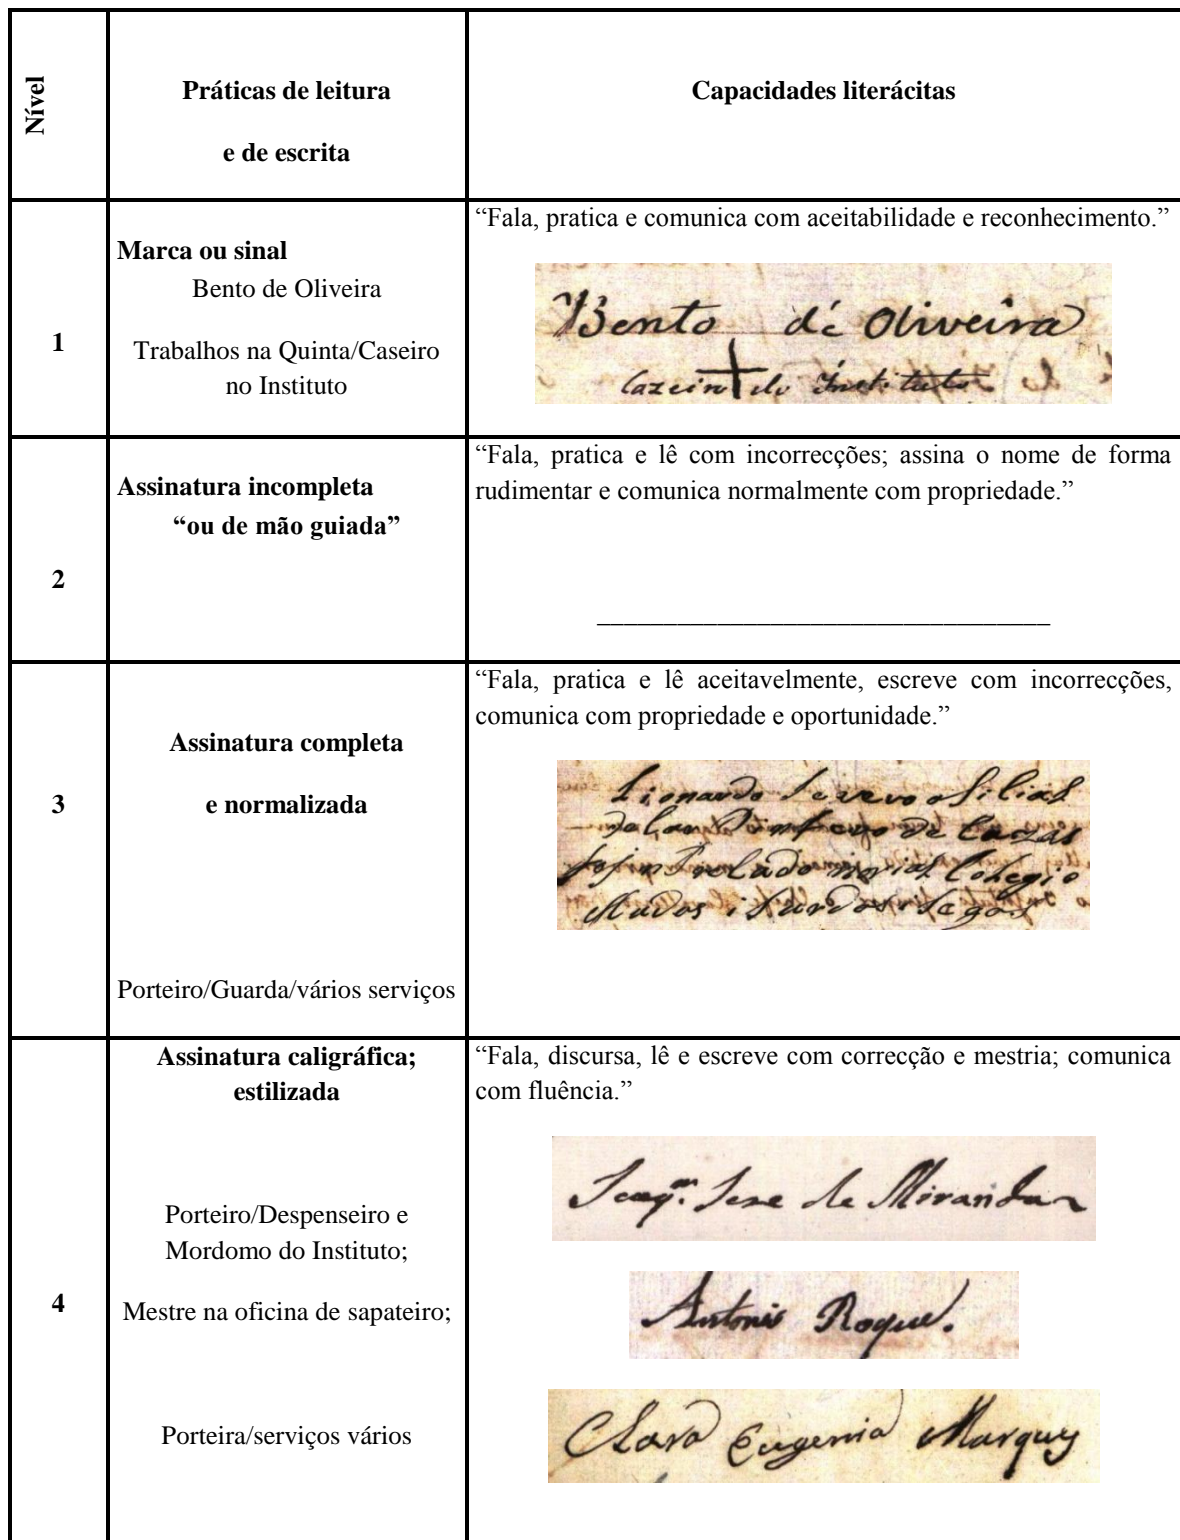 Nível
Práticas de leitura
e de escrita
Capacidades literácitas
1
Marca ou sinal
Bento de Oliveira
Trabalhos na Quinta/Caseiro
no Instituto
“Fala, pratica e comunica com aceitabilidade e reconhecimento.”
Bento de Oliveira
Cazeiro do Instituto
2
Assinatura incompleta
“ou de mão guiada”
“Fala, pratica e lê com incorrecções; assina o nome de forma
rudimentar e comunica normalmente com propriedade.”
3
Assinatura completa
e normalizada
Porteiro/Guarda/vários serviços
“Fala, pratica e lê aceitavelmente, escreve com incorrecções,
comunica com propriedade e oportunidade.”
Lionardo
de Cazas
Colegio
Mudos i Surdos i Segos
4
Assinatura caligráfica;
estilizada
Porteiro/Despenseiro e
Mordomo do Instituto;
Mestre na oficina de sapateiro;
Porteira/serviços vários
“Fala, discursa, lê e escreve com correcção e mestria; comunica
com fluência.”
de Miranda
Antonio Roque.
Clara Eugenia Marques